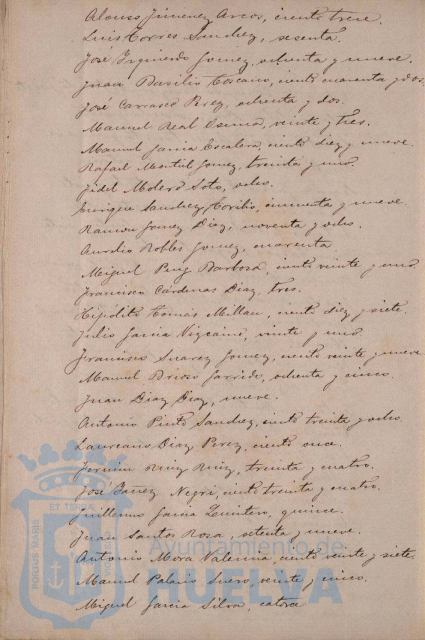 Alonso Jimenez Arcos, ciento trece.
Luis Torres Sanchez, sesenta.
José Izquierdo Gomez, ochenta y nueve.
Juan Basilio Toscano, ciento cuarenta y dos.
José Carrasco Perez, ochenta y dos.
Manuel Real Osuna, veinte y tres.
Manuel Garcia Escalera, ciento diez y nueve.
Rafael Montiel Gomez, treinta y uno.
Fidel Molero Soto, ocho.
Enrique Sanchez, cincuenta y nueve.
Ramon Gomez Diaz, noventa y ocho.
Aurelio Robles Gomez, cuarenta
Miguel Puig Barbosa, ciento veinte y uno.
Francisco Cárdenas Diaz, tres.
Hipólito Tomás Millan, ciento diez y siete.
Julio Garcia Vizcaino, veinte y uno.
Francisco Suarez Gomez, ciento veinte y nueve
Manuel Garrido, ochenta y cinco.
Juan Diaz Diaz, nueve.
Antonio Pinto Sanchez, ciento treinta y ocho.
Laureano Diaz Perez, ciento once.
Fermin Ruiz Ruiz, treinta y cuatro.
José Negri, ciento treinta y cuatro.
Guillermo Garcia, quince.
Juan Santos Rosa, setenta y nueve.
Antonio Mora, ciento veinte y siete.
Manuel Palacio Suero, veinte y cinco.
Miguel Garcia Silva, catorce
PORTUS MARIS
ET TERRÆ
Ayuntamiento de
HUELVA